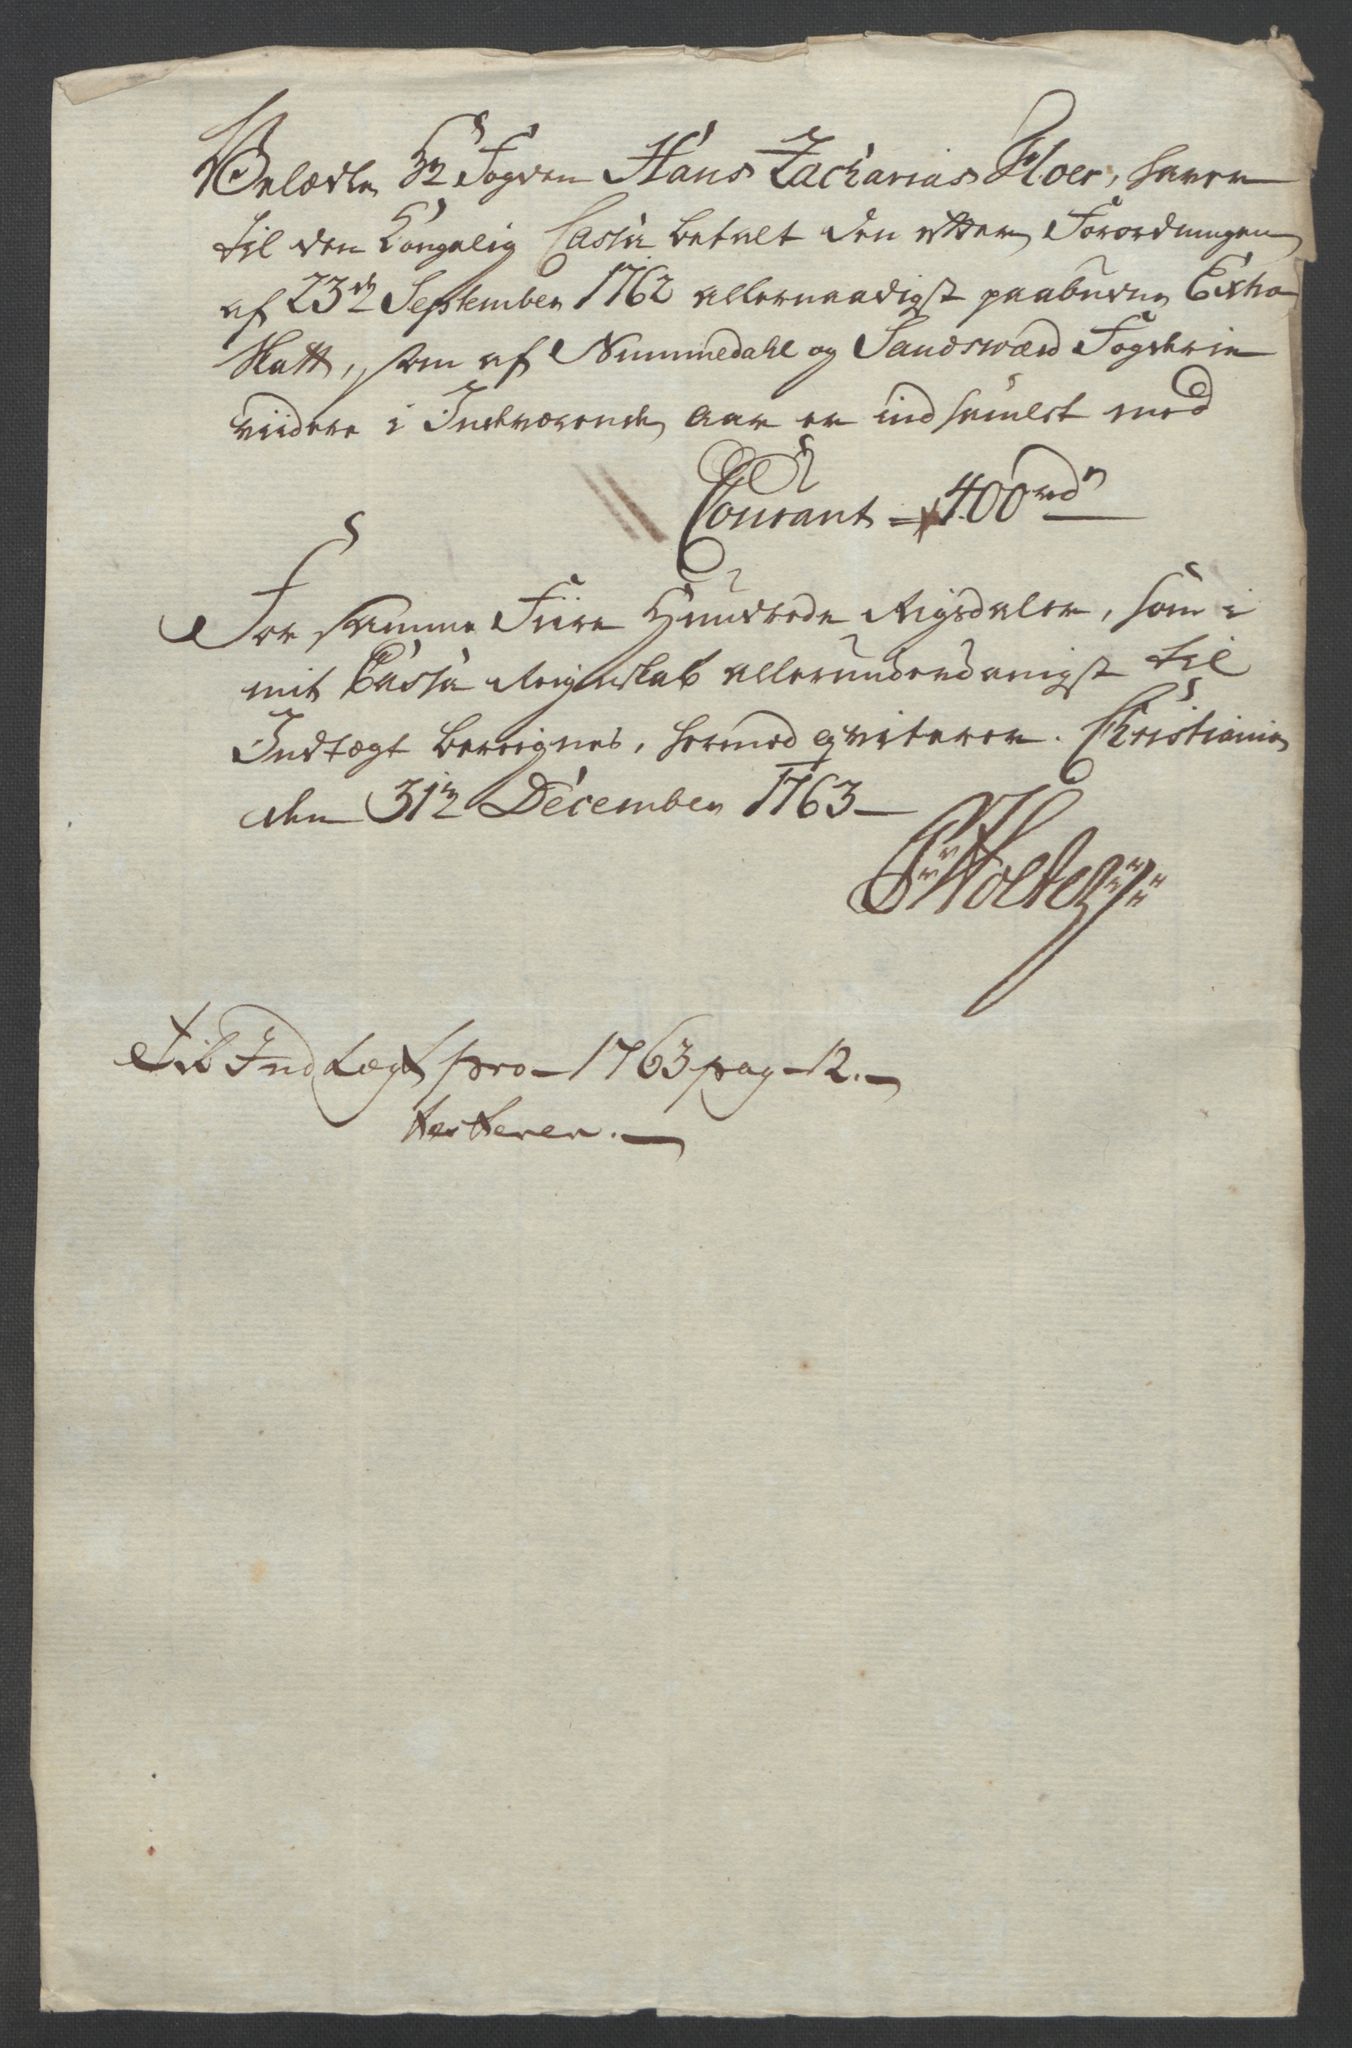 Velædle Hr Fogden Hans Zacharias Floer, haver
til den Kongelig Cassa betalt den efter Forordningen
af 23de September 1762 allernaadigst paabudne Extra
Skatt, som af Nummedahl og Sandsværd Fogderie
viidere i Indeværende aar er indsamlet med
Courant = 400 rdr
For samme Fiire Hundrede Rigsdaler, som i
mit Cassa Reignskab allerunderdanigst til
Indtægt bereignes, hermed qviterer. Christiania
den 31te December 1763
P Holter
Til Indtægt pro 1763 pag 12.
testerer.